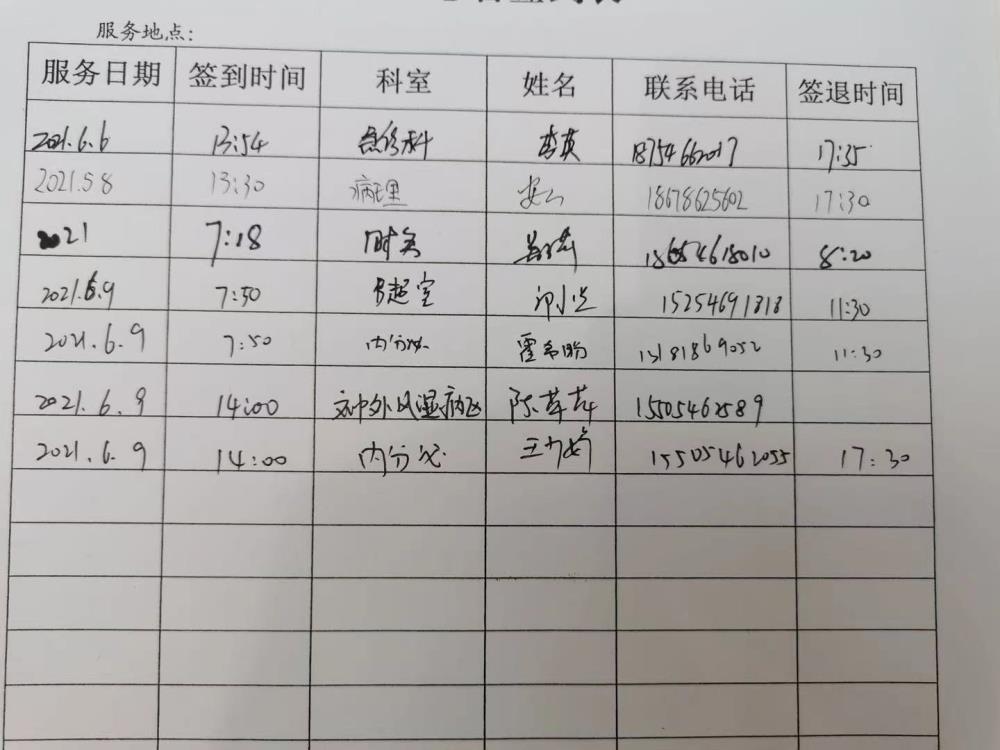 服务地点:
服务日期 签到时间 科室 姓名 联系电话 签退时间
2021.6.6 13:54 急诊科 李英 18754662017 17:35
2021.5.8 13:30 病理 18678625602 17:30
2021 7:18 财务 18654618010 8:20
2021.6.9 7:50 B超室 15254691818 11:30
2021.6.9 7:50 内分泌 霍 13181869052 11:30
2021.6.9 14:00 外风湿病区 陈 15505462589
2021.6.9 14:00 内分泌 王 15505462055 17:30